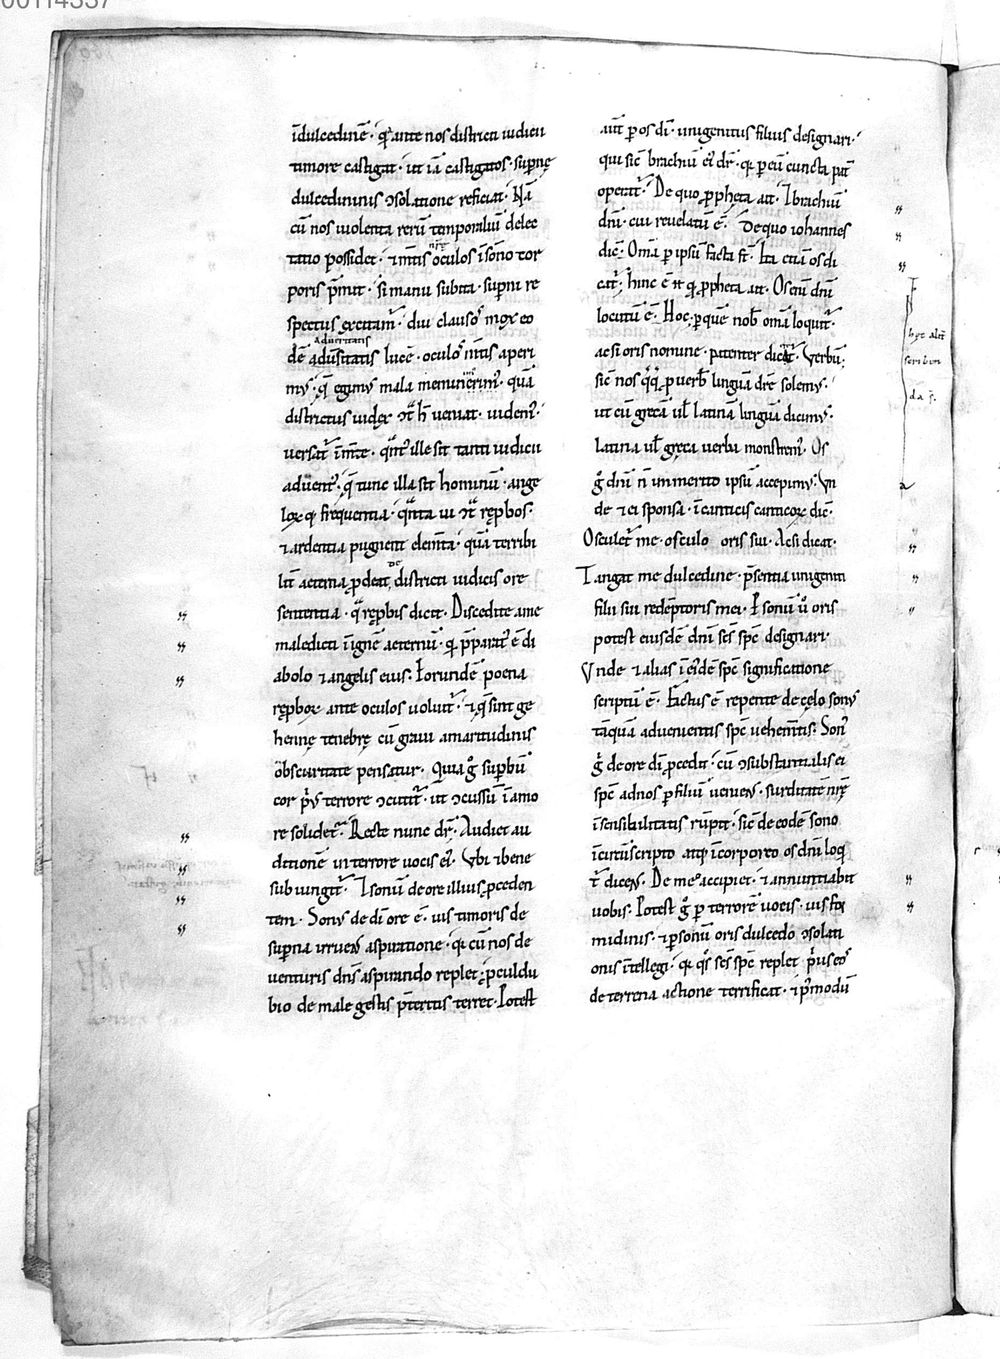 00114337
īdulcedinē· q̄ ante nos districti iudicii
timore castigat· ut iā castigatos supernę
dulcedininis ɔsolatione reficiat· Nā
cū nos uiolenta rerū temporaliū delec
tatio possidet· ⁊ m̄tis nr̄ę oculos ī sōno tor
poris p̄mit· si manu subita superni re
spectus excitam̄· diu clausos mox eo
dē aduersitatis lucē· oculos m̄tis aperi
adūsitatis
mꝰ· q̄ egimꝰ mala meminerimꝰ· quā
districtus iudex ɔt͛ h̄ ueniat· uidemꝰ·
uersat͛ ī m̄te· q̄ntꝰ ille sit tanti iudicii
aduentꝰ· q̄ tunc illa sit hominū· ange
loꝝ q; frequentia· q̄nta ui ɔt͛ rep̱bos·
⁊ ardentia pugnent elem̄ta· quā terribi
lit͛ aeterna p̱deat, de districti iudicis ore
sententia· q̄ rep̱bis dicit· Discedite a me
maledicti ī ignē aeternū· qi p̄paratꝰ ē di
abolo ⁊ angelis eius· Eorundē poena
rep̱boꝝ ante oculos uoluit͛· ⁊ q̄ sint ge
hennę tenebrę cū graui amaritudinis
obscuritate pensatur· Quia g̊ superbū
cor pͥꝰ terrore ɔcutit͛· ut ɔcussū ī amo
re solidet͛· Recte nunc dr̄· Audiet au
ditionē in terrore uocis eiꝰ· Vbi ⁊ bene
subiungit͛· ⁊ sonū de ore illius p̱ceden
tem· Sonꝰ de dī ore ē· uis timoris de
superna irruens aspiratione· q; cū nos de
uenturis dn̄s aspirando replet· p̱culdu
bio de male gestis p̄teritis terret· Potest
aūt p os dī· unigenitus filius designari·
qui sic̄ brachiū eiꝰ dr̄· q; p eū cuncta pat͛
operat͛· De quo p̱pheta ait· ⁊ brachiū
dn̄i· cui reuelatū ē· De quo iohannes
dic̄· Om̄a p ipsū facta st̄· Ita etiā os dī
dicit͛· hinc ē ⁊ qi p̱pheta ait· Os enī dn̄i
locutū ē· Hoc p̱ quē nob̄ om̄a loquit͛·
ac si oris nomine· patenter dicat͛· Verbū·
sic̄ nos q̊q; p uerb̄ linguā dr̄e solemꝰ·
ut cū grecā ul̄ latinā linguā dicimꝰ·
latina ul̄ greca uerba monstremꝰ· Os
g̊ dn̄i n̄ immerito ipsū accepimꝰ· Vn
de ⁊ ei sponsa· ī canticis canticoꝝ dic̄·
Osculet͛ me· osculo oris sui· Ac si dicat·
Tangat me dulcedine· p̄sentia unigeniti
filii sui redēptoris mei· P sonū u͛ oris
potest eiusdē dn̄i sc̄s sp̄c designari·
Vnde ⁊ alias ī eiꝰdē sp̄c significatione
scriptū ē· Factus ē repente de cęlo sonꝰ
tāquā aduenientis sp̄c uehem̄tis· Sonꝰ
g̊ de ore dī p̱cedit· cū ɔsubstantialis ei
sp̄c ad nos p filiū ueniens· surditatē nr̄ę
īsensibilitatis rūpit· sic̄ de eodē sono
īcircūscripto atq; īcorporeo os dn̄i loqi
t͛ dicens· De meo accipiet· ⁊ annuntiabit
uobis· Potest g̊ p terrorē uocis· uis for
midinis· ⁊ p sonū oris dulcedo ɔsolati
onis ītellegi· q; qͦs sc̄s sp̄c replet pͥus eos
de terrena actione terrificat· ⁊ p̱modū
hęc alit͛
scriben
da s̄·